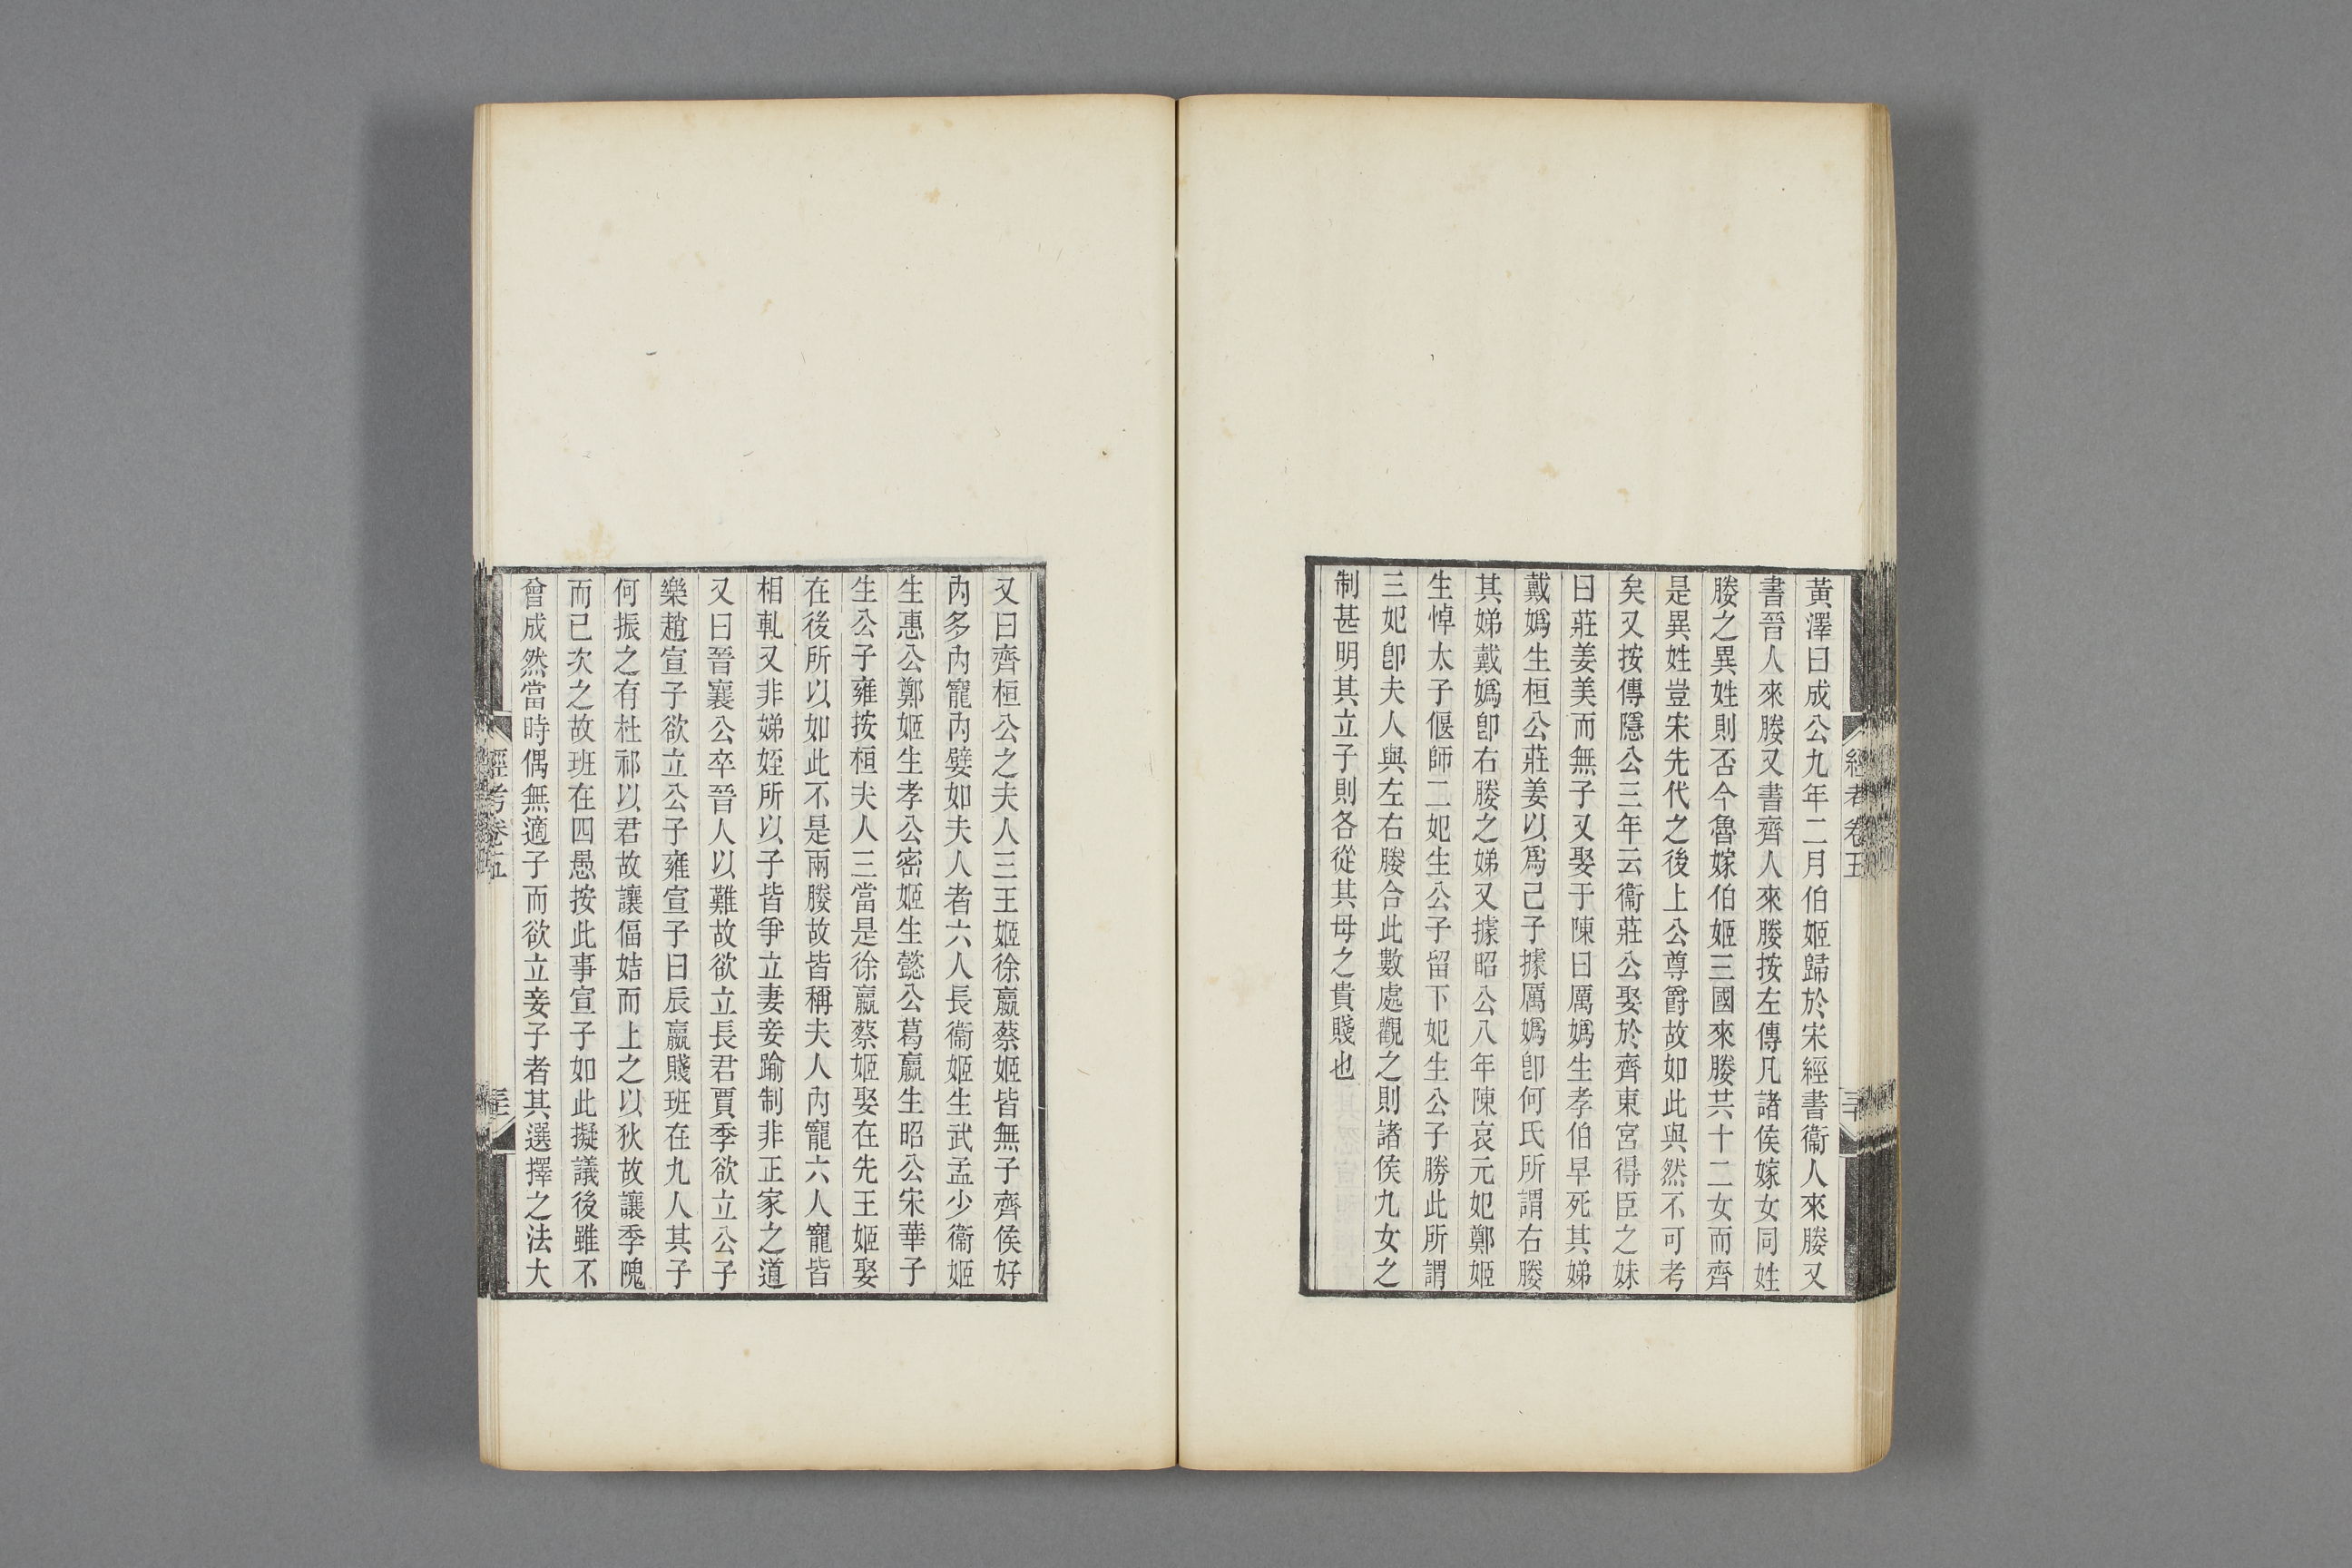 黃澤曰成公九年二月伯姬歸於宋經書衞人來媵又
書晉人來媵又書齊人來媵按左傳凡諸侯嫁女同姓
媵之異姓則否今魯嫁伯姬三國來媵共十二女而齊
是異姓豈宋先代之後上公尊爵故如此與然不可考
矣又按傳隱公三年云衞莊公娶於齊東宮得臣之妹
曰莊姜美而無子又娶于陳曰厲嬀生孝伯早死其娣
戴嬀生桓公莊姜以爲己子據厲嬀卽何氏所謂右媵
其娣戴嬀卽右媵之娣又據昭公八年陳哀元妃鄭姬
生悼太子偃師二妃生公子留下妃生公子勝此所謂
三妃卽夫人與左右媵合此數處觀之則諸侯九女之
制甚明其立子則各從其母之貴賤也
經考卷五
三十
又曰齊桓公之夫人三王姬徐嬴蔡姬皆無子齊侯好
內多內寵內嬖如夫人者六人長衞姬生武孟少衞姬
生惠公鄭姬生孝公密姬生懿公葛嬴生昭公宋華子
生公子雍按桓夫人三當是徐嬴蔡姬娶在先王姬娶
在後所以如此不是兩媵故皆稱夫人內寵六人寵皆
相軋又非娣姪所以子皆爭立妻妾踰制非正家之道
又曰晉襄公卒晉人以難故欲立長君賈季欲立公子
樂趙宣子欲立公子雍宣子曰辰嬴賤班在九人其子
何振之有杜祁以君故讓偪姞而上之以狄故讓季隗
而己次之故班在四愚按此事宣子如此擬議後雖不
曾成然當時偶無適子而欲立妾子者其選擇之法大
經考卷五